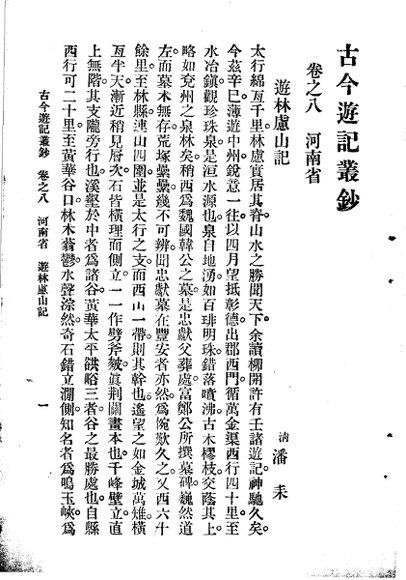 古今遊記叢鈔
卷之八　河南省
遊林慮山記
清　潘　耒
太行綿亙千里林慮實居其脊山水之勝聞天下余讀柳開許有壬諸遊記神馳久矣
今茲辛巳薄遊中州銳意一往以四月望抵彰德出郡西門循萬金渠西行四十里至
水冶鎭觀珍珠泉是洹水源也泉自地湧如百琲明珠錯落噴沸古木樛枝交蔭其上
略如兗州之泉林矣稍西爲魏國韓公之墓是忠獻父葬處富鄭公所撰墓碑巍然道
左而墓木無存荒塚纍纍幾不可辨聞忠獻墓在豐安者亦然爲惋歎久之又西六十
餘里至林縣連山四圍並是太行之支而西山一帶則其幹也遙望之如金城萬雉橫
亙半天漸近稍見層次石皆橫理而側立一一作劈斧皴眞荆關畫本也千峰壁立直
上無階其支隴旁行也漢壑於中者爲諸谷黃華太平䜫峪三者谷之最勝處也自縣
西行可二十里至黃華谷口林木蓊鬱水聲淙然奇石錯立澗側知名者爲鳴玉峽爲
古今遊記叢鈔　卷之八　河南省　遊林慮山記　一